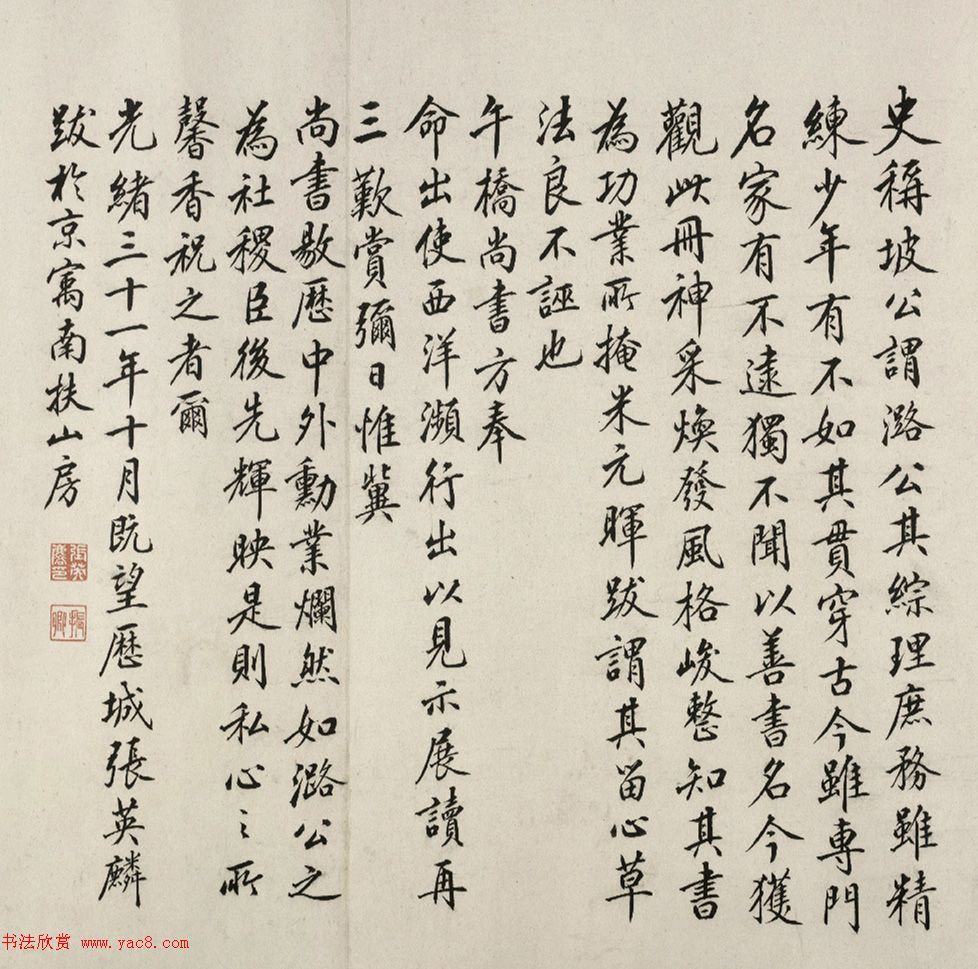 史稱坡公謂潞公其綜理庶務雖精
練少年有不如其貫穿古今雖專門
名家有不逮獨不聞以善書名今獲
觀此冊神采煥發風格峻整知其書
為功業所掩米元暉跋謂其留心草
法良不誣也
午橋尚書方奉
命出使西洋瀕行出以見示展讀再
三歎賞彌日惟冀
尚書敭歷中外勳業爛然如潞公之
為社稷臣後先輝映是則私心之所
馨香祝之者爾
光緒三十一年十月既望歷城張英麟
跋於京寓南扶山房
張英麟印
振卿
书法欣赏 www.yac8.com